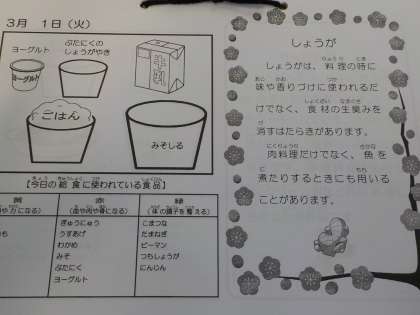 3月　1日（火）
ヨーグルト
ぶたにくの
しょうがやき
ヨーグルト
ごはん
みそしる
【今日の給食に使われている食品】
黄
赤
緑
力になる）
（血や肉や骨になる）
（体の調子を整える）
ぎゅうにゅう
うすあげ
わかめ
みそ
ぶたにく
ヨーグルト
こまつな
たまねぎ
ピーマン
つちしょうが
にんじん
しょうが
しょうがは、料理の時に
味や香りづけに使われるだ
けでなく、食材の生臭みを
消すはたらきがあります。
肉料理だけでなく、魚を
煮たりするときにも用いる
ことがあります。